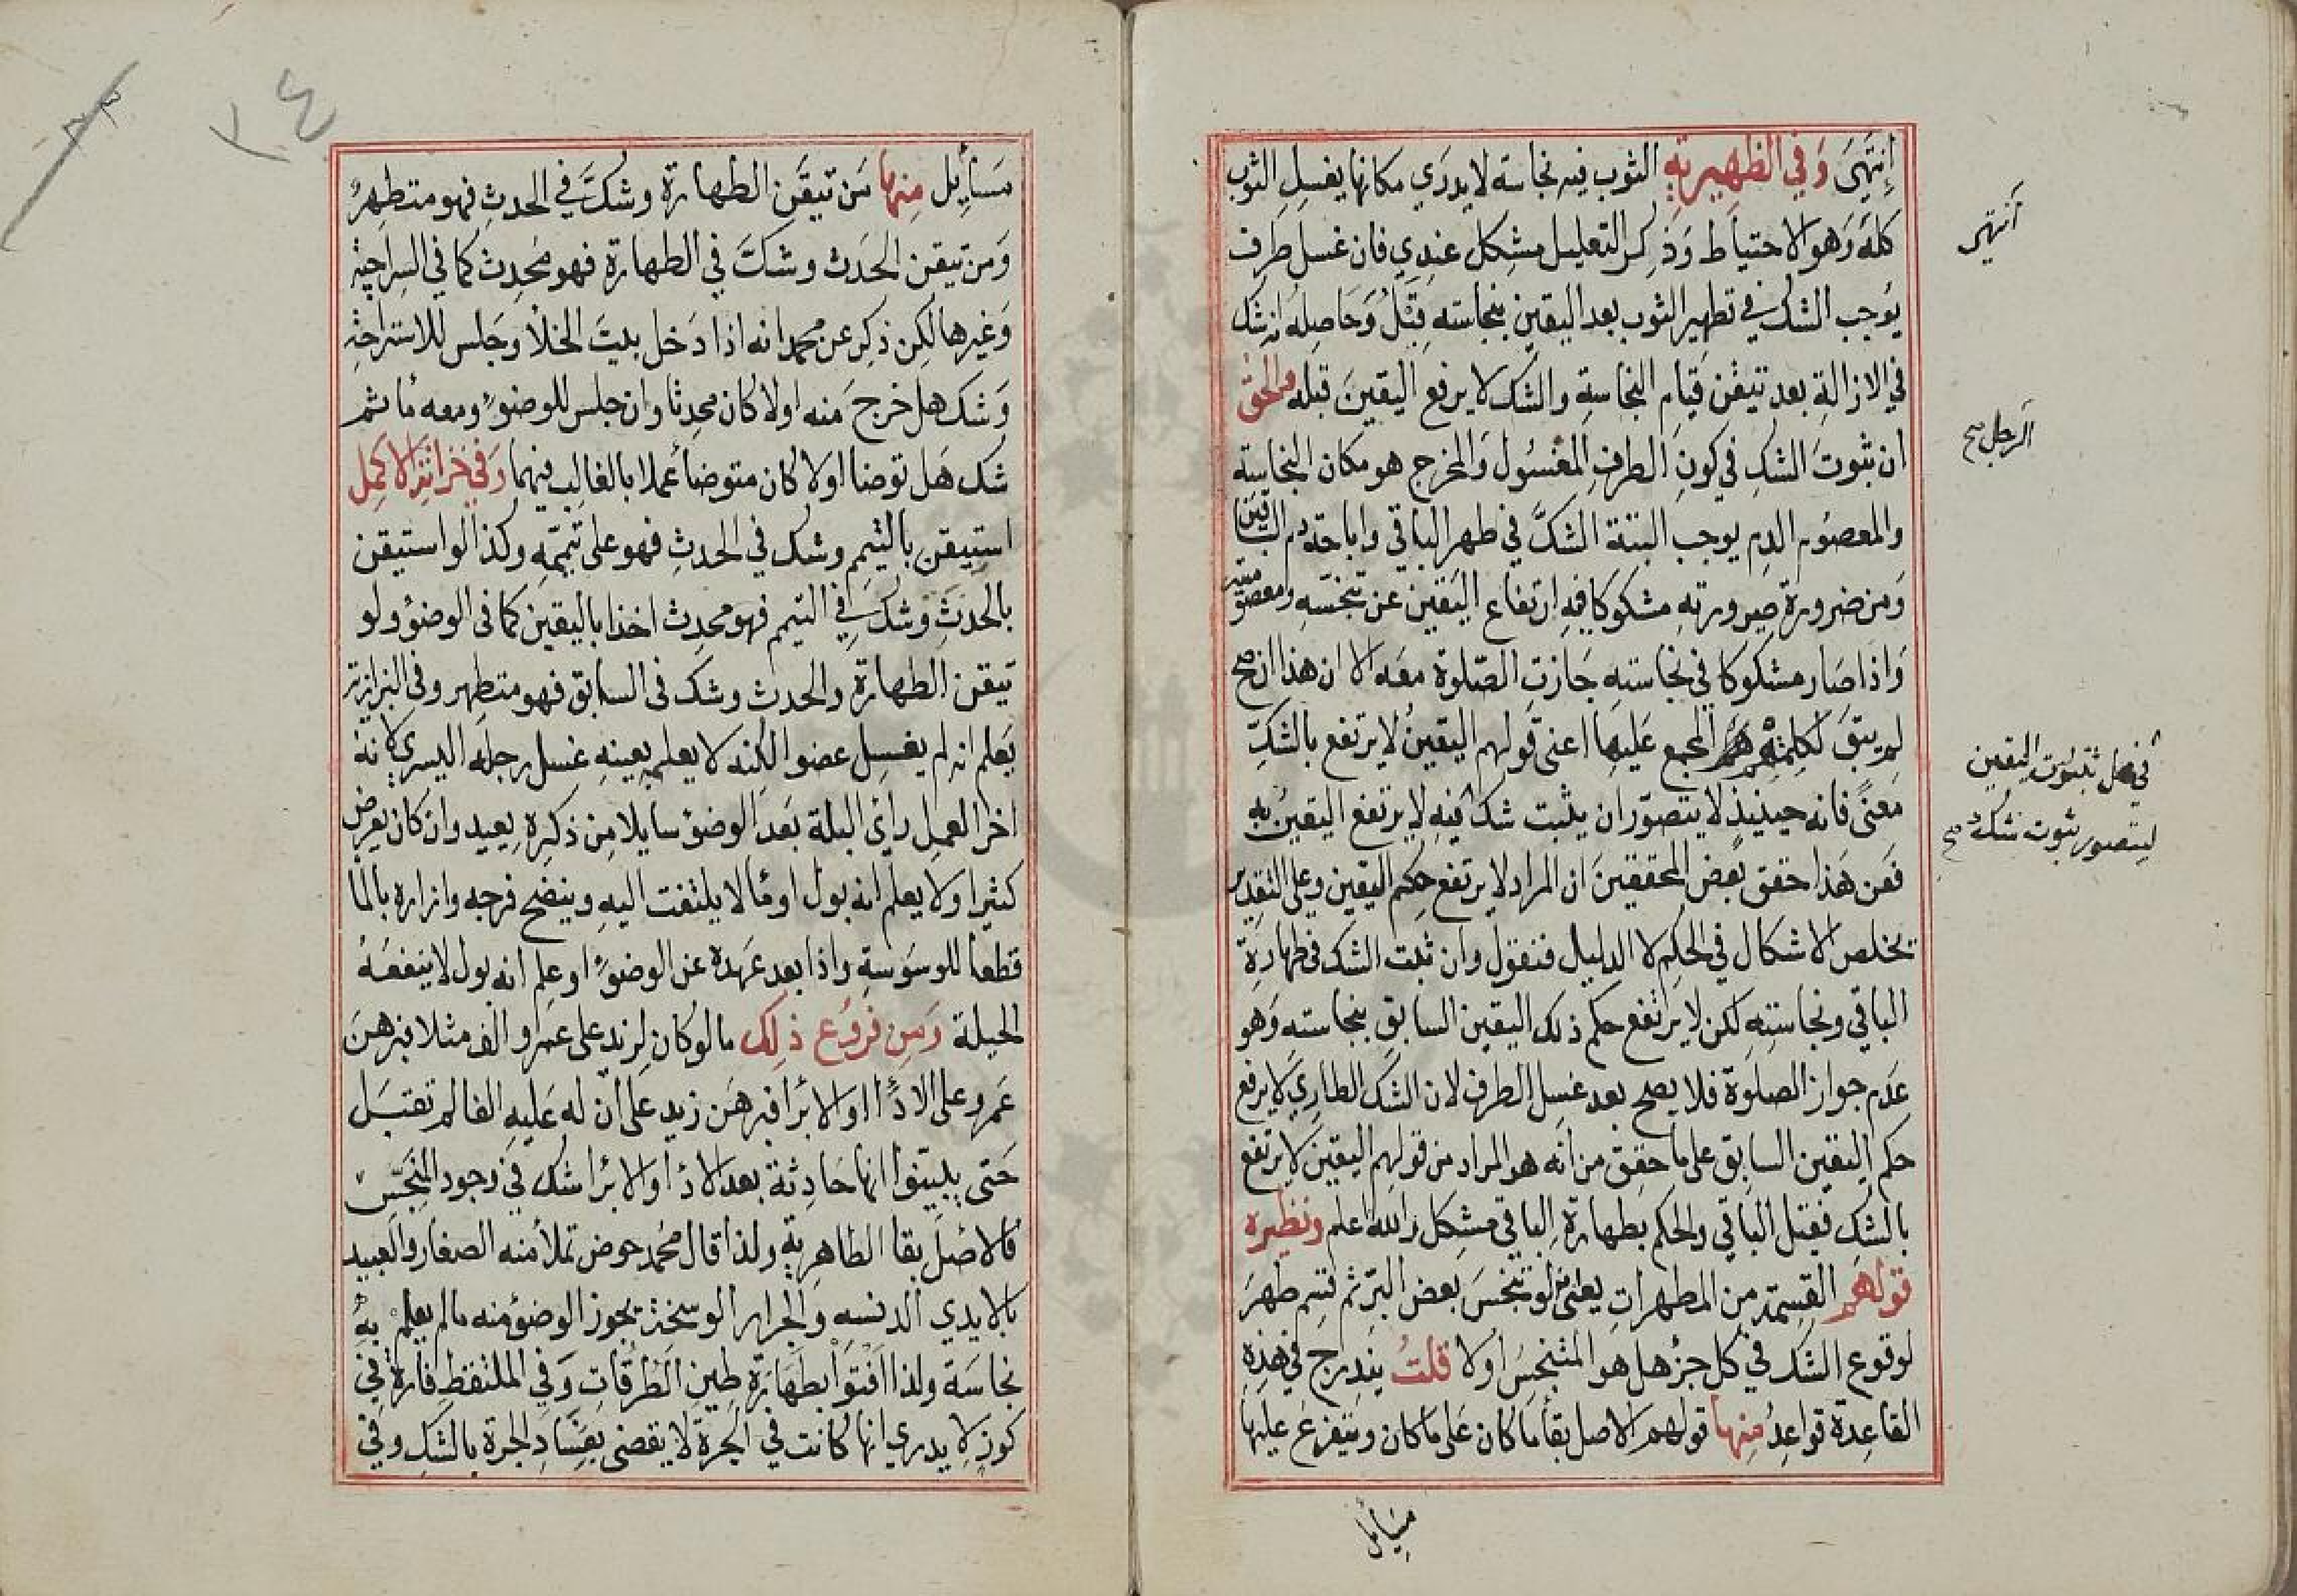 إنتهى وفي الظهيرية الثوب فيه نجاسة لا يدري مكانها يغسل الثوب
كله وهو الاحتياط وذكر التعليل مشكل عندي فان غسل طرف
يوجب الشك في تطهير الثوب بعد اليقين بنجاسته قبل وحاصله انه شك
في الازالة بعد تيقن قيام النجاسة والشك لا يرفع اليقين قبله والحق
ان ثبوت الشك في كون الطرف المغسول والمخرج هو مكان النجاسة
والمعصوم الدم يوجب البتة الشك في طهر الباقي واباحة دم الباقين
ومن ضرورة صيرورته مشكوكا فيه ارتفاع اليقين عن تنجسه ومعصوميته
واذا صار مشكوكا في نجاسته جازت الصلوة معه الا ان هذا ان صح
لم يبق لكلمتهم المجمع عليها اعني قولهم اليقين لا يرتفع بالشك
معنى فانه حينيذ لا يتصور ان يثبت شك فيه لا يرتفع اليقين به
فعن هذا حقق بعض المحققين ان المراد لا يرتفع حكم اليقين وعلى التقدير
يخلص الاشكال في الحكم لا الدليل فنقول وان ثبت الشك في طهارة
الباقي ونجاسته لكن لا يرتفع حكم ذلك اليقين السابق بنجاسته وهو
عدم جواز الصلوة فلا يصح بعد غسل الطرف لان الشك الطاري لا يرفع
حكم اليقين السابق على ما حقق من انه هو المراد من قولهم اليقين لا يرتفع
بالشك فقتل الباقي والحكم بطهارة الباقي مشكل والله اعلم ونظيره
قولهم القسمة من المطهرات يعني لو تنجس بعض البر ثم قسم طهر
لوقوع الشك في كل جزء هل هو المتنجس اولا قلت يندرج في هذه
القاعدة قواعد منها قولهم الاصل بقا ما كان على ما كان ويتفرع عليها
مسايل
انتهى
الرجل صح
في محل ثبوت اليقين
ليتصور ثبوت شك صح
١٤
مسأيل منها من تيقن الطهارة وشك في الحدث فهو متطهر
ومن تيقن الحدث وشك في الطهارة فهو محدث كما في السراجية
وغيرها لكن ذكر عن محمد انه اذا دخل بيت الخلا وجلس للاستراحة
وشك هل خرج منه اولا كان محدثا وان جلس للوضوء ومعه ما ثم
شك هل توضا اولا كان متوضأ عملا بالغالب فيهما وفي خزانة الاكمل
استيقن بالتيمم وشك في الحدث فهو على تيممه وكذا لو استيقن
بالحدث وشك في التيمم فهو محدث اخذا باليقين كما في الوضوء ولو
تيقن الطهارة والحدث وشك في السابق فهو متطهر وفي البزازية
يعلم انه لم يغسل عضوا لكنه لا يعلم بعينه غسل رجله اليسرى لانه
اخر العمل راى البلة بعد الوضؤ سايلا من ذكره يعيد وان كان يعرض
كثيرا ولا يعلم انه بول اوما لا يلتفت اليه وينضح فرجه وازاره بالما
قطعا للوسوسة واذا بعد عهده عن الوضوء او علم انه بول لا ينفعه
الحيلة ومن فروع ذلك ما لو كان لزيد على عمرو الف مثلا فبرهن
عمرو على الادا او الابرا فبرهن زيد على ان له عليه الفا لم تقبل
حتى يبينوا انها حادثة بعد الادا او الابرا شك في وجود المنجس
فالاصل بقا الطاهرية ولذا قال محمد حوض تملأ منه الصغار والعبيد
بالايدي الدنسه والجرار الوسخة يجوز الوضؤ منه ما لم يعلم به
نجاسة ولذا افتوا بطهارة طين الطرقات وفي الملتقط فارة في
كوز لا يدري انها كانت في الجرة لا يقضى بفساد الجرة بالشك وفي